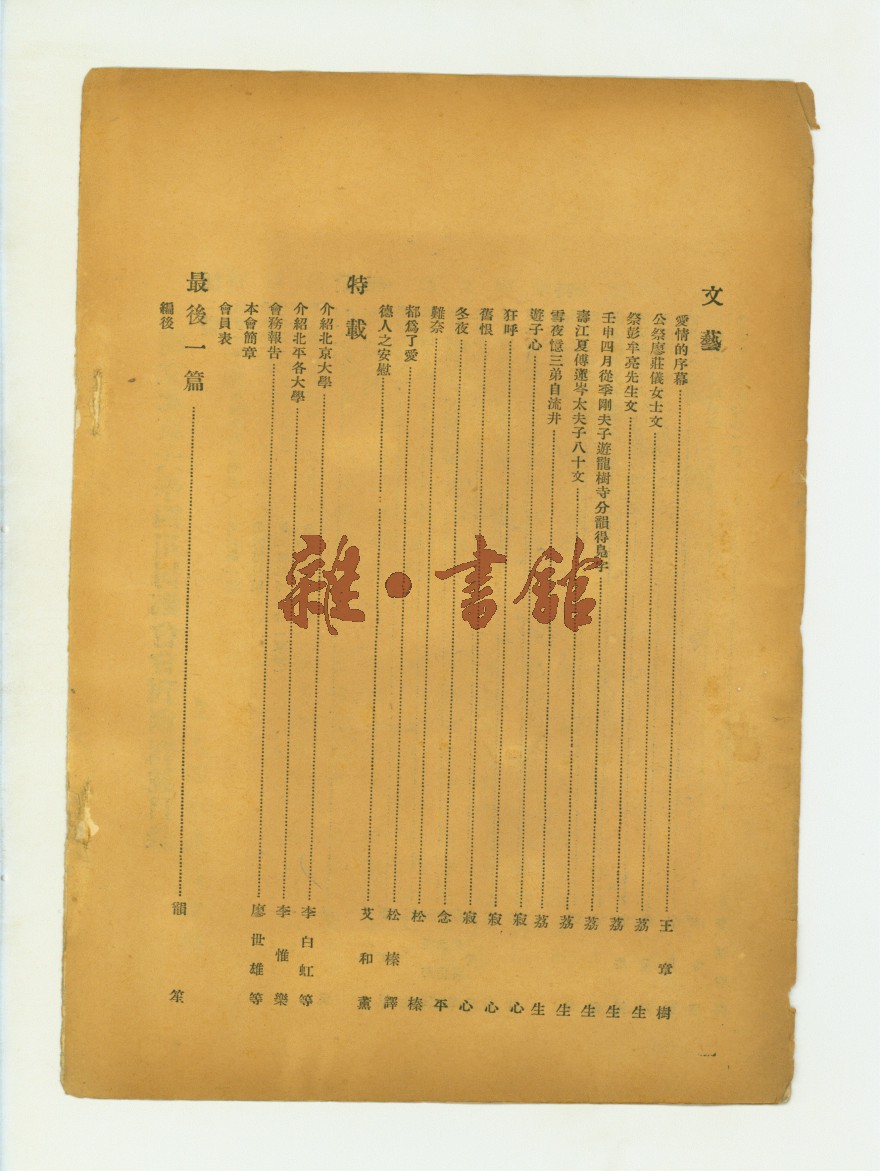 文藝
愛情的序幕……王章樹
公祭廖莊儀女士文……荔生
祭彭牟亮先生文……荔生
壬申四月從季剛夫子遊龍樹寺分韻得鳧字……荔生
壽江夏傅邇岑太夫子八十文……荔生
雪夜憶三弟自流井……荔生
遊子心……寂心
狂呼……寂心
舊恨……寂心
冬夜……念平
難奈……松榛
都爲了愛……松榛譯
德人之安慰……艾和薰
特載
介紹北京大學……李白虹等
介紹北平各大學……李惟樂
會務報告……廖世雄等
本會簡章
會員表
最後一篇……韻笙
編後
一
雜·書館